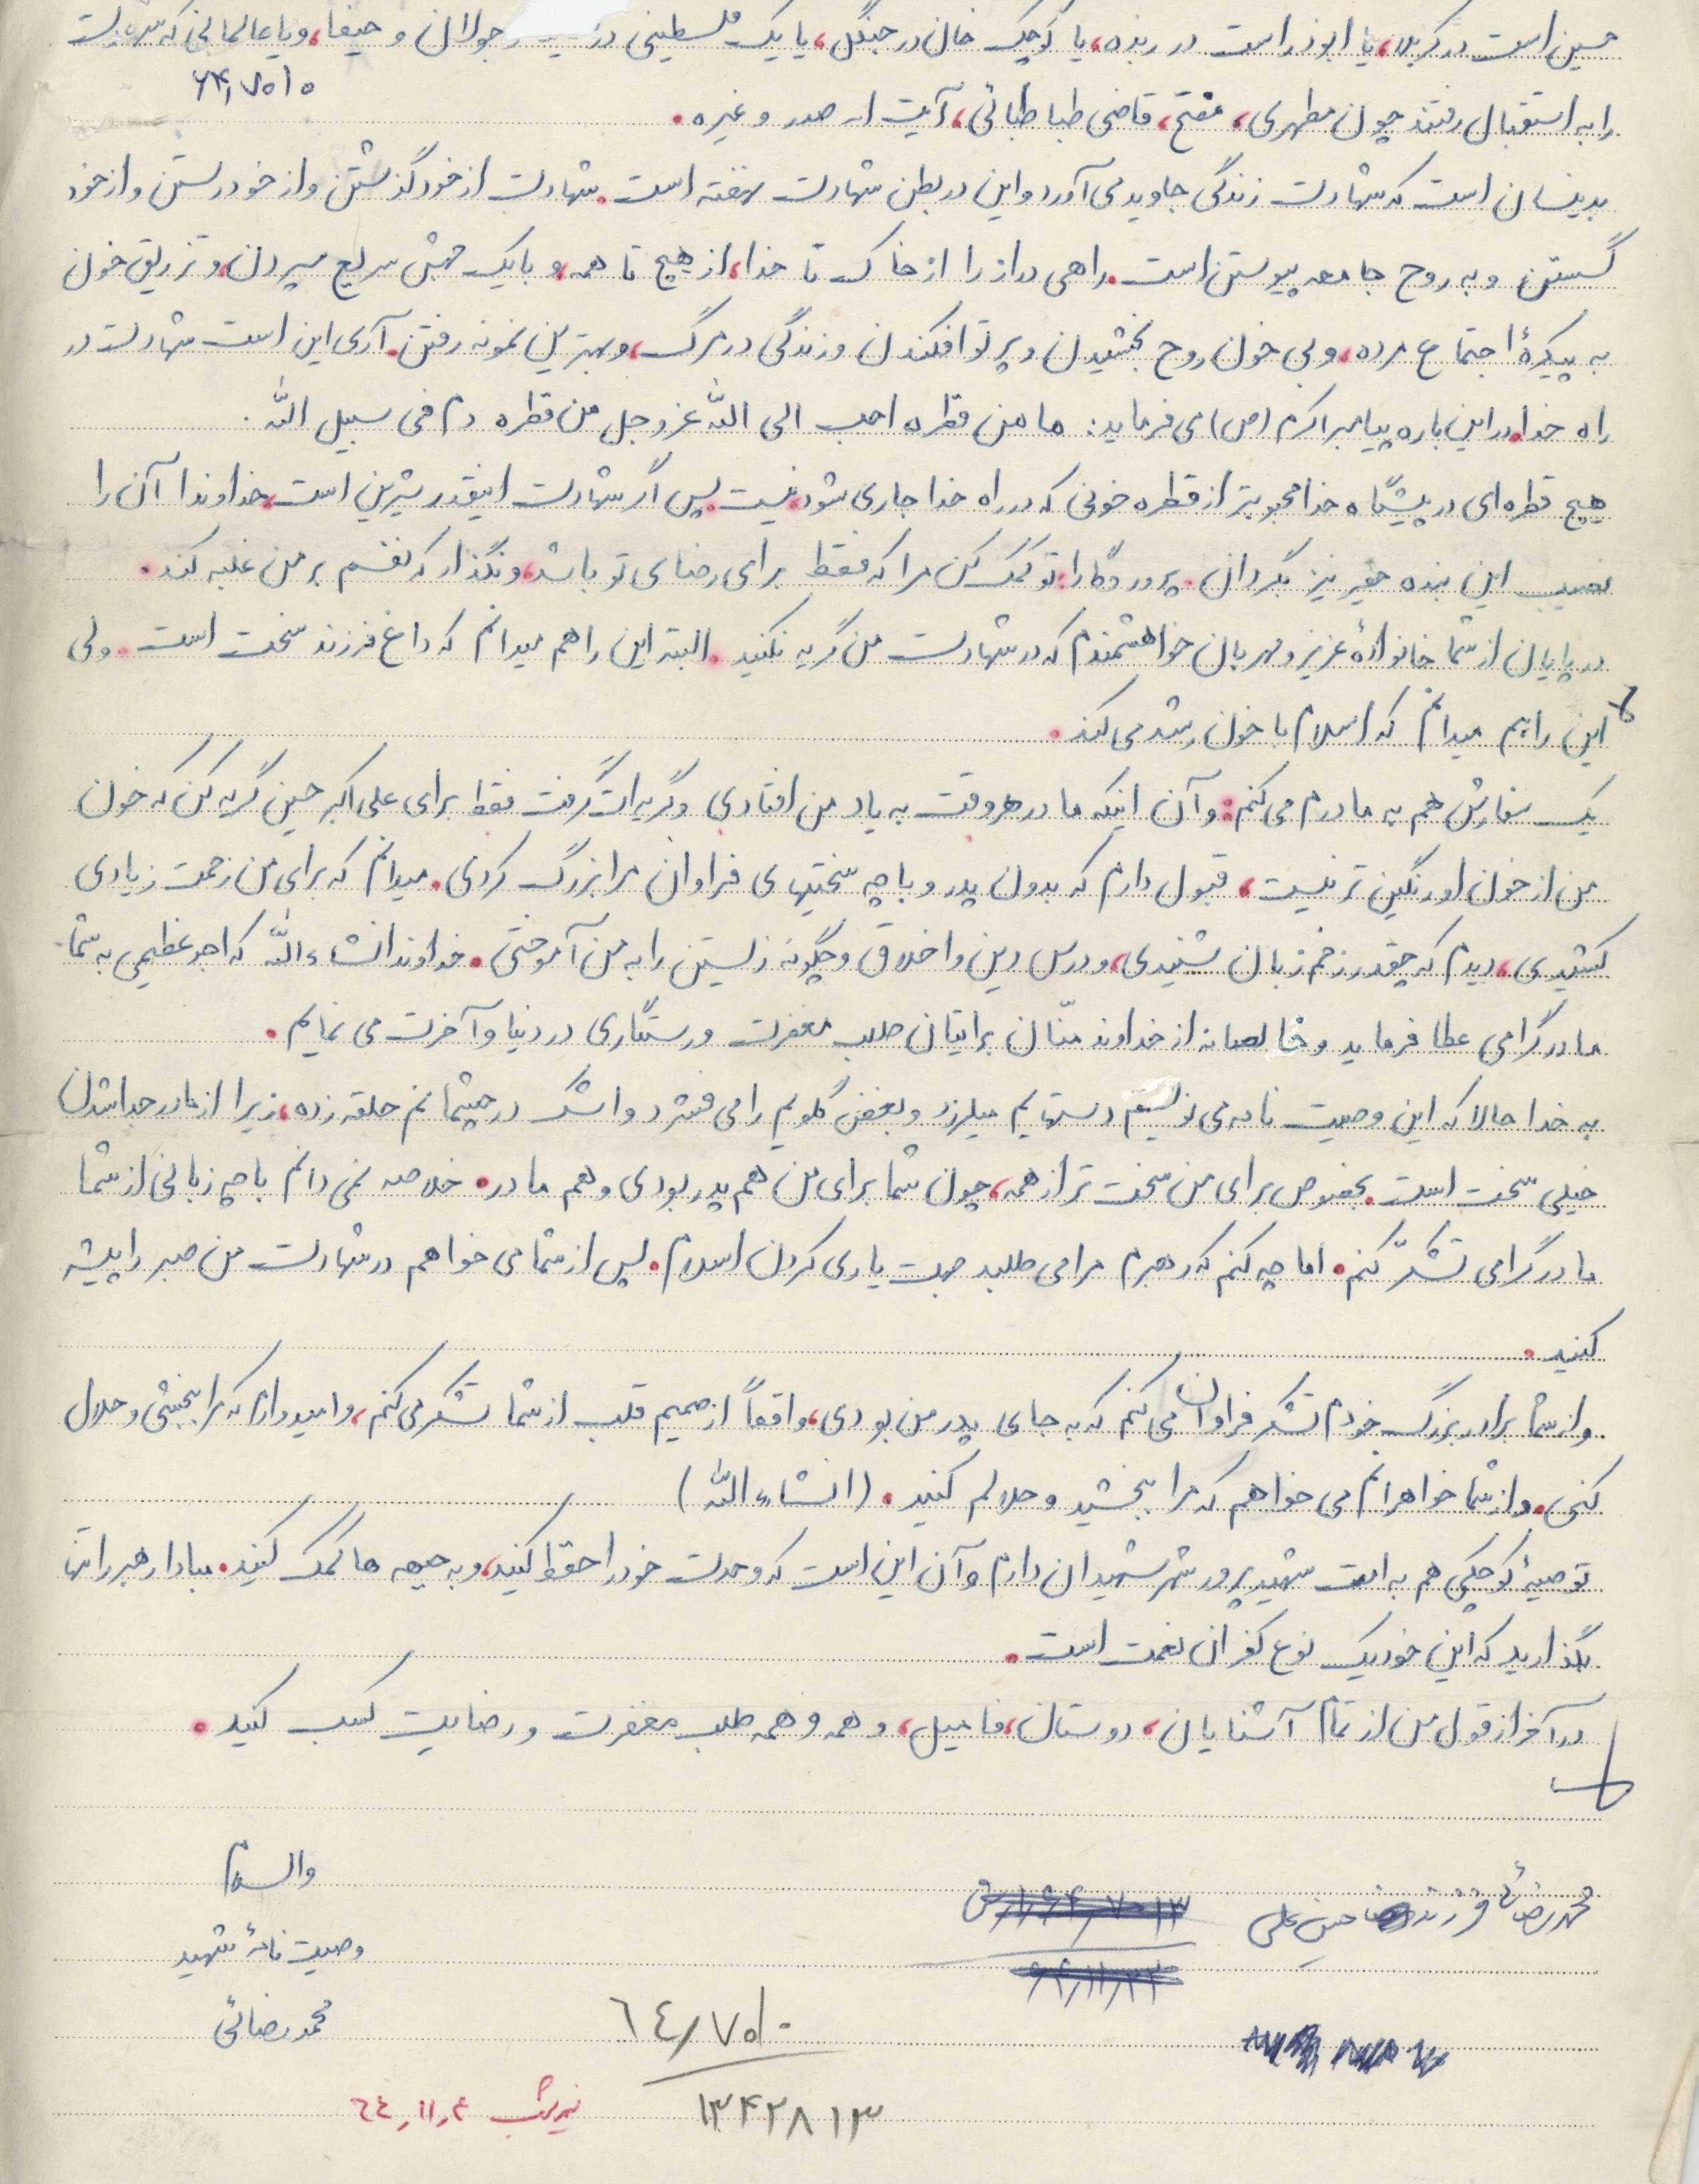 حسین است در کربلا، یا ابوذر است در ربذه، یا کوچک خان در جنگل، یا یک فلسطینی در جولان و حیفا، و یا عالمانی که شهادت
را به استقبال رفتند چون مطهری، مفتح، قاضی طباطبائی، آیت ا.. صدر و غیره.
بدینسان است که شهادت زندگی جاوید می‌آورد و این در بطن شهادت نهفته است. شهادت از خود گذشتن و از خود رستن و از خود
گسستن و به روح جامعه پیوستن است. راهی دراز را از خاک تا خدا، از هیچ تا همه، و با یک جهش سریع سپردن، و تزریق خون
به پیکرۀ اجتماع مرده، و بی خون روح بخشیدن و پرتو افکندن و زندگی در مرگ، و بهترین نمونه رفتن. آری این است شهادت در
راه خدا. در این باره پیامبر اکرم (ص) می فرماید: ما من قطره احب الی اللّه عزوجل من قطره دم فی سبیل اللّه.
هیچ قطره ای در پیشگاه خدا محبوبتر از قطره خونی که در راه خدا جاری شود، نیست. پس اگر شهادت اینقدر شیرین است، خداوندا آن را
نصیب این بنده حقیر نیز بگردان. پروردگارا: تو کمک کن مرا که فقط برای رضای تو باشد، و نگذار که نفسم بر من غلبه کند.
در پایان از شما خانوادۀ عزیز و مهربان خواهشمندم که در شهادت من گریه نکنید. البته این را هم میدانم که داغ فرزند سخت است. ولی
این را هم میدانم که اسلام با خون رشد می کند.
یک سفارش هم به مادرم می کنم: و آن اینکه مادر هر وقت به یاد من افتادی و گریه ات گرفت فقط برای علی اکبر حسین گریه کن که خون
من از خون او رنگین تر نیست، قبول دارم که بدون پدر و با چه سختیهای فراوان مرا بزرگ کردی. میدانم که برای من زحمت زیادی
کشیدی، دیدم که چقدر زخم زبان شنیدی، و درس دین و اخلاق و چگونه زیستن را به من آموختی. خداوند انشاءاللّه که اجر عظیمی به شما
مادر گرامی عطا فرماید و خالصانه از خداوند منّان برایتان طلب مغفرت و رستگاری در دنیا و آخرت می نمایم.
به خدا حالا که این وصیت نامه می نویسم دستهایم میلرزد و بغض گلویم را می فشرد و اشک در چشمانم حلقه زده، زیرا از مادر جدا شدن
خیلی سخت است. بخصوص برای من سخت تر از همه، چون شما برای من هم پدر بودی و هم مادر. خلاصه نمی دانم با چه زبانی از شما
مادر گرامی تشکّر کنم. اما چه کنم که رهبرم مرا می طلبد جهت یاری کردن اسلام. پس از شما می خواهم در شهادت من صبر را پیشه
کنید.
و از شما برادر بزرگ خودم تشکر فراوان می کنم که به جای پدر من بودی، واقعاً از صمیم قلب از شما تشکر می کنم، و امیدوارم که مرا ببخشی و حلال
کنی. و از شما خواهرانم می خواهم که مرا ببخشید و حلالم کنید. (انشاءاللّه)
توصیۀ کوچکی هم به امت شهید پرور شهر شهیدان دارم و آن این است که وحدت خود را حفظ کنید، و به جبهه ها کمک کنید. مبادا رهبر را تنها
بگذارید که این خود یک نوع کفران نعمت است.
در آخر از قول من از تمام آشنایان، دوستان، فامیل، و همه و همه طلب مغفرت و رضایت کسب کنید.
والسلام
محمد رضائی فرزند حسین علی
وصیت نامۀ شهید
محمد رضائی
۱۳۴۲۸۱۳